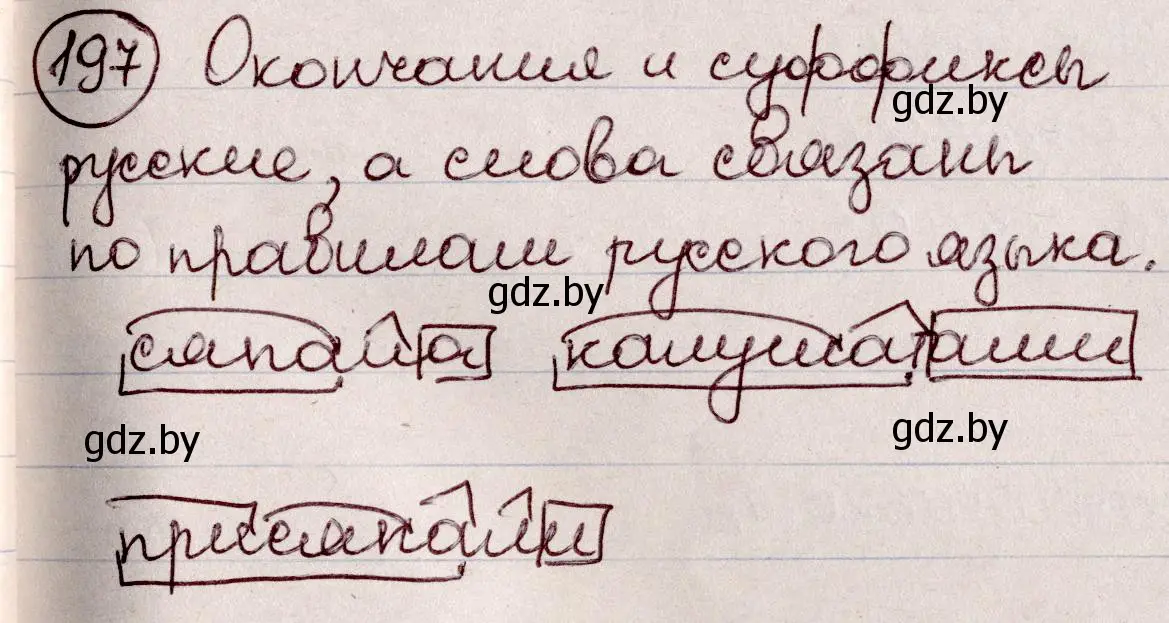 197 Окончания и суффиксы
gdz.by
русские, а слова связаны
по правилам русского языка.
gdz.by
сяпала калушатами
gdz.by
gdz.by
присяпали